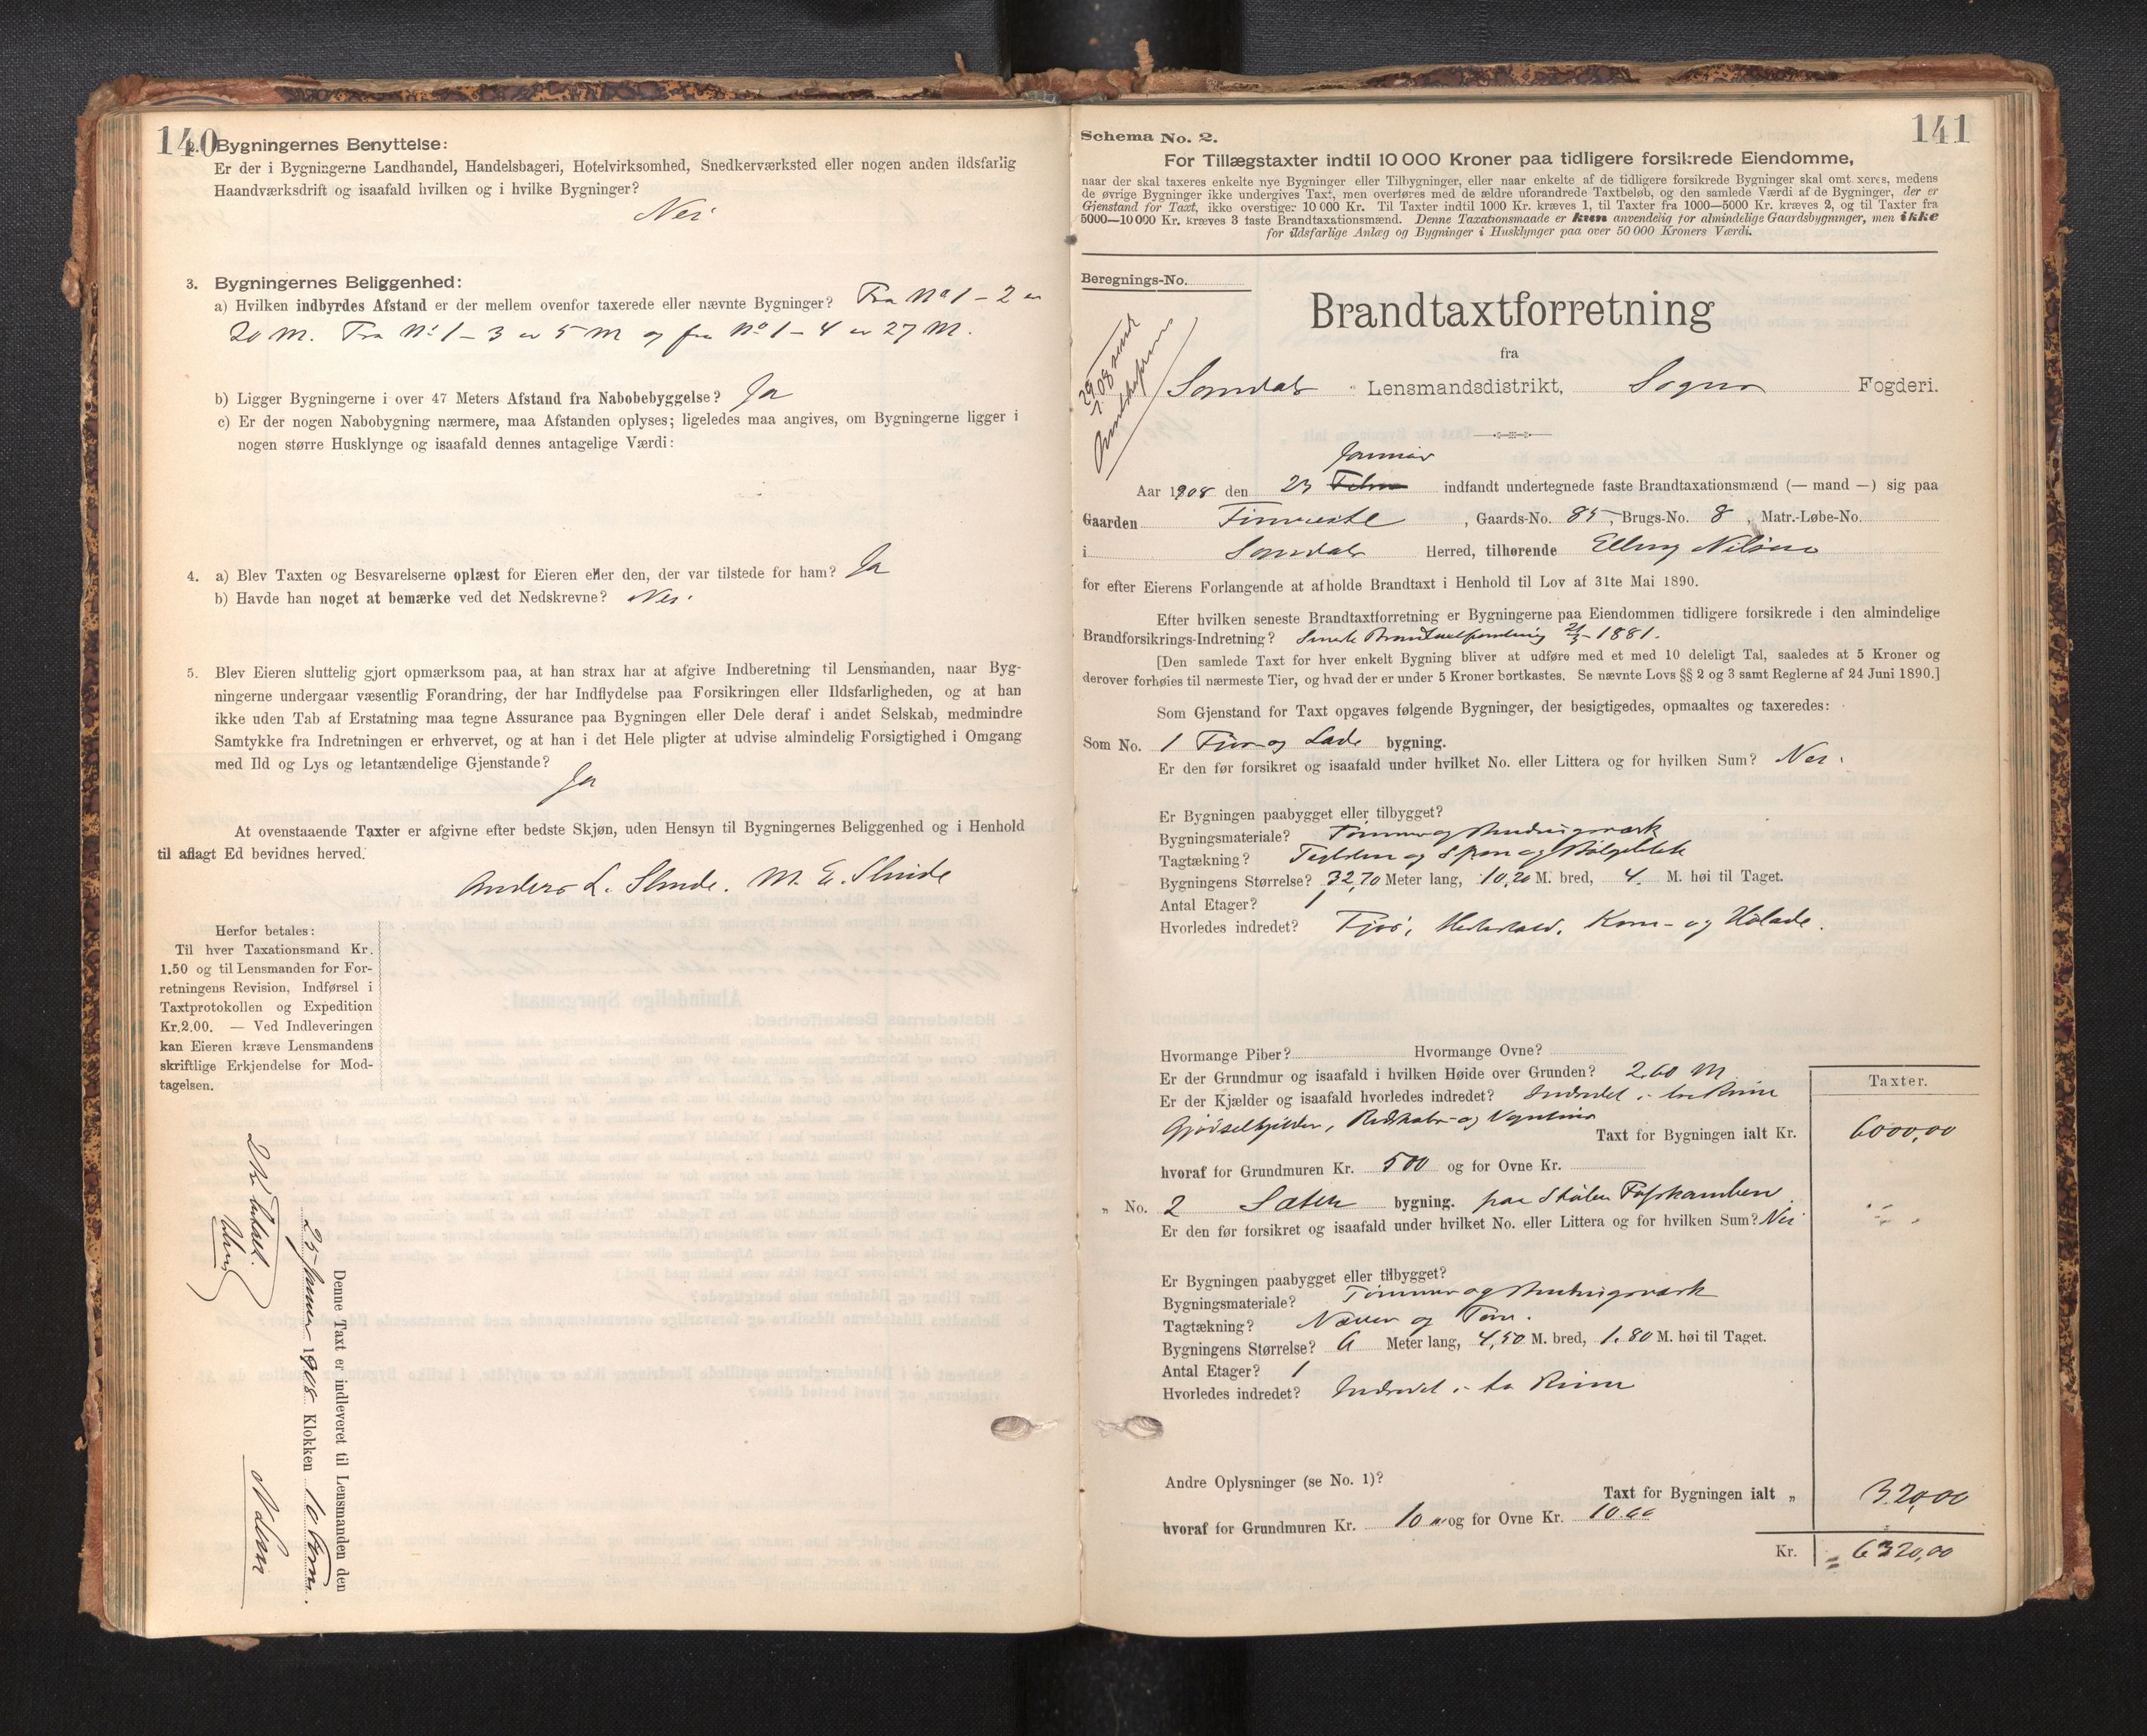 140
2. Bygningernes Benyttelse:
Er der i Bygningerne Landhandel, Handelsbageri, Hotelvirksomhed, Snedkerværksted eller nogen anden ildsfarlig
Haandværksdrift og isaafald hvilken og i hvilke Bygninger?
Nei
3. Bygningernes Beliggenhed:
a) Hvilken indbyrdes Afstand er der mellem ovenfor taxerede eller nævnte Bygninger? Fra No 1 – 2 er
20 M. Fra No 1 – 3 er 5 M og fra No 1 – 4 er 27 M.
b) Ligger Bygningerne i over 47 Meters Afstand fra Nabobebyggelse? Ja
c) Er der nogen Nabobygning nærmere, maa Afstanden oplyses; ligeledes maa angives, om Bygningerne ligger i
nogen større Husklynge og isaafald dennes antagelige Værdi:
4. a) Blev Taxten og Besvarelserne oplæst for Eieren eller den, der var tilstede for ham? Ja
b) Havde han noget at bemærke ved det Nedskrevne? Nei.
5. Blev Eieren sluttelig gjort opmærksom paa, at han strax har at afgive Indberetning til Lensmanden, naar Byg-
ningerne undergaar væsentlig Forandring, der har Indflydelse paa Forsikringen eller Ildsfarligheden, og at han
ikke uden Tab af Erstatning maa tegne Assurance paa Bygningen eller Dele deraf i andet Selskab, medmindre
Samtykke fra Indretningen er erhvervet, og at han i det Hele pligter at udvise almindelig Forsigtighed i Omgang
med Ild og Lys og letantændelige Gjenstande?
Ja
At ovenstaaende Taxter er afgivne efter bedste Skjøn, uden Hensyn til Bygningernes Beliggenhed og i Henhold
til aflagt Ed bevidnes herved.
Anders L. Slinde. M. E. Slinde
Herfor betales:
Til hver Taxationsmand Kr.
1.50 og til Lensmanden for For-
retningens Revision, Indførsel i
Taxtprotokollen og Expedition
Kr.2.00. — Ved Indleveringen
kan Eieren kræve Lensmandens
skriftlige Erkjendelse for Mod-
tagelsen.
Denne Taxt er indleveret til Lensmanden den
25 Januar 1908 Klokken 10 Form.
141
Schema No. 2.
For Tillægstaxter indtil 10 000 Kroner paa tidligere forsikrede Eiendomme,
naar der skal taxeres enkelte nye Bygninger eller Tilbygninger, eller naar enkelte af de tidligere forsikrede Bygninger skal omtaxeres, medens
de øvrige Bygninger ikke undergives Taxt, men overføres med de ældre uforandrede Taxtbeløb, og den samlede Værdi af de Bygninger, der er
Gjenstand for Taxt, ikke overstiger 10 000 Kr. Til Taxter indtil 1000 Kr. kræves 1, til Taxter fra 1000—5000 Kr. kræves 2, og til Taxter fra
5000—10 000 Kr. kræves 3 faste Brandtaxationsmænd. Denne Taxationsmaade er kun anvendelig for almindelige Gaardsbygninger, men ikke
for ildsfarlige Anlæg og Bygninger i Husklynger paa over 50 000 Kroners Værdi.
Beregnings-No.
Brandtaxtforretning
fra
Sogndals Lensmandsdistrikt, Sogns Fogderi.
Januar
Aar 1908 den 23 indfandt undertegnede faste Brandtaxationsmænd (— mand —) sig paa
Gaarden Fimreite, Gaards-No. 85, Brugs-No. 8, Matr.-Løbe-No.
i Sogndals Herred, tilhørende Elling Nilsen
for efter Eierens Forlangende at afholde Brandtaxt i Henhold til Lov af 31te Mai 1890.
Efter hvilken seneste Brandtaxtforretning er Bygningerne paa Eiendommen tidligere forsikrede i den almindelige
Brandforsikrings-Indretning? Seneste Brandtaxtforretning 21/3 – 1881.
[Den samlede Taxt for hver enkelt Bygning bliver at udføre med et med 10 deleligt Tal, saaledes at 5 Kroner og
derover forhøies til nærmeste Tier, og hvad der er under 5 Kroner bortkastes. Se nævnte Lovs §§ 2 og 3 samt Reglerne af 24 Juni 1890.]
Som Gjenstand for Taxt opgaves følgende Bygninger, der besigtigedes, opmaaltes og taxeredes:
Som No. 1 Fjøs og Lade bygning.
Er den før forsikret og isaafald under hvilket No. eller Littera og for hvilken Sum? Nei.
Er Bygningen paabygget eller tilbygget?
Bygningsmateriale? Tømmer og Bindingsværk
Tagtækning? Teglsten og Spon og Bølgeblik
Bygningens Størrelse? 32,70 Meter lang, 10,20 M. bred, 4. M. høi til Taget.
Antal Etager? 1
Hvorledes indredet? Fjøs, Hestestald, Korn- og Hølade.
Hvormange Piber? Hvormange Ovne?
Er der Grundmur og isaafald i hvilken Høide over Grunden? 2.60 M
Er der Kjælder og isaafald hvorledes indredet? Indredet i tre Rum
Gjødselkjelder, Redskabs- og
Taxt for Bygningen ialt Kr.
Taxter.
6000,00
hvoraf for Grundmuren Kr. 500 og for Ovne Kr.
" No. 2 Sæter bygning. paa Stølen
Er den før forsikret og isaafald under hvilket No. eller Littera og for hvilken Sum? Nei
Er Bygningen paabygget eller tilbygget?
Bygningsmateriale? Tømmer og Bindingsværk
Tagtækning? Næver og Torv.
Bygningens Størrelse? 6 Meter lang, 4,50 M. bred, 1.80 M. høi til Taget.
Antal Etager? 1
Hvorledes indredet? Indredet i to Rum
Andre Oplysninger (se No. 1)?
Taxt for Bygningen ialt " 320,00
hvoraf for Grundmuren Kr. 10 og for Ovne Kr. 10.00
Kr. 6320,00